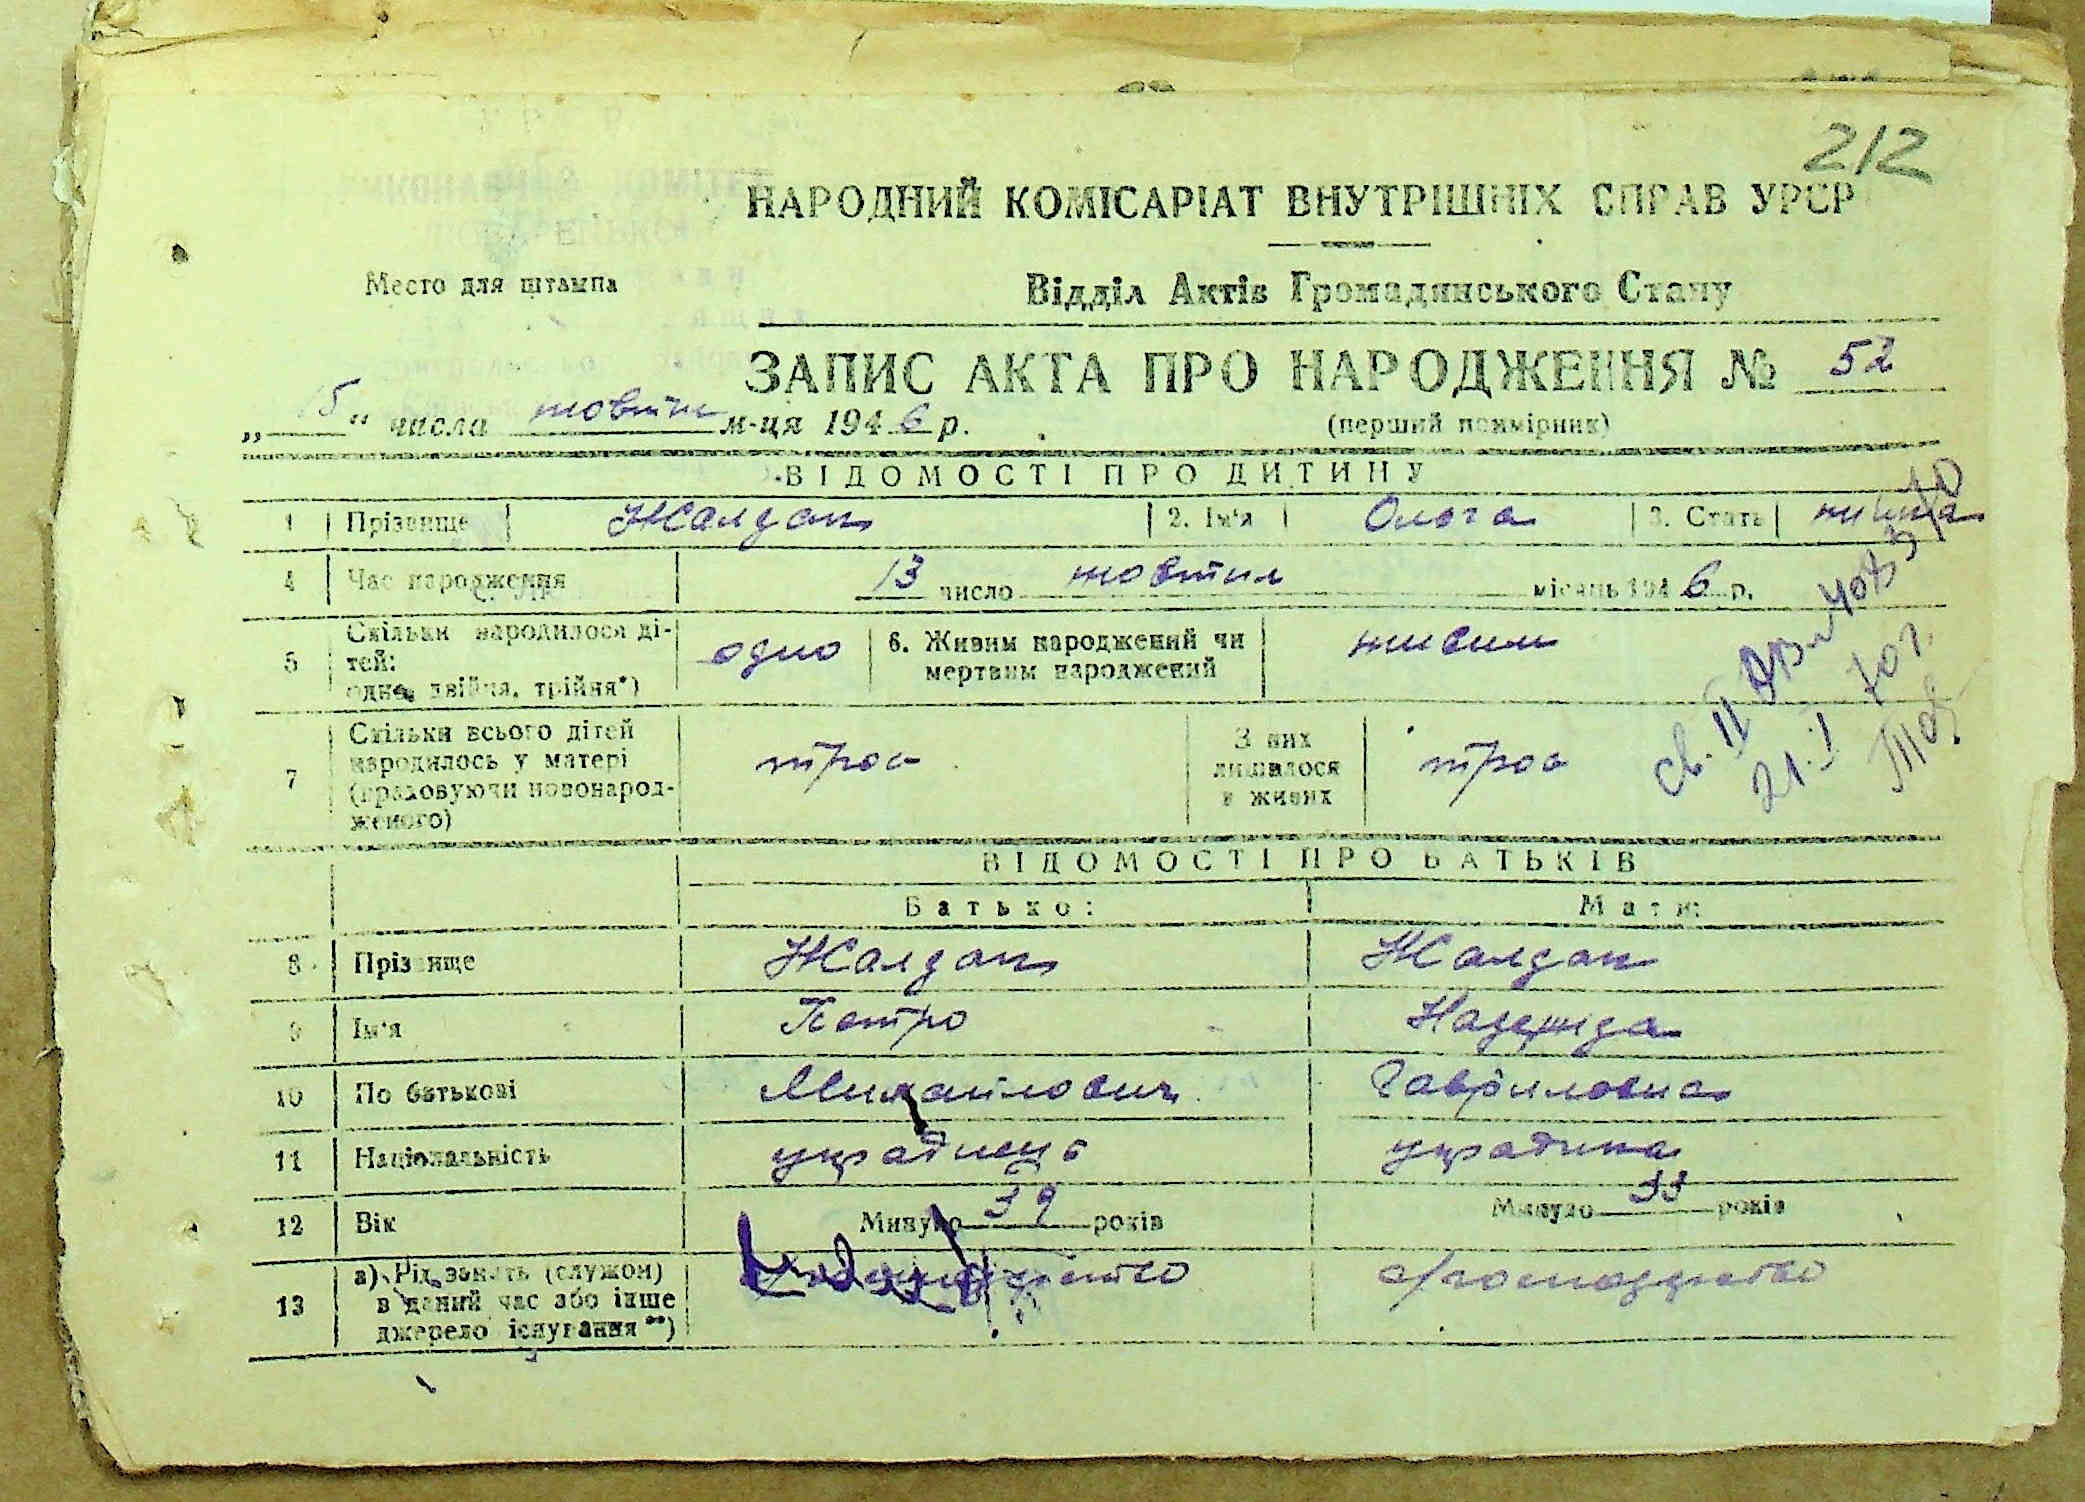 212
НАРОДНИЙ КОМІСАРІАТ ВНУТРІШНІХ СПРАВ УРСР
Место для штампа
Відділ Актів Громадянського Стану
ЗАПИС АКТА ПРО НАРОДЖЕННЯ № 52
„15“ числа жовтня м-ця 1946 р.
(перший примірник)
ВІДОМОСТІ ПРО ДИТИНУ
1 Прізвище Жалдак 2. Ім'я Ольга 3. Стать
4 Час народження 13 число жовтня місяць 1946 р.
5 Скільки народилося дітей: одно, двійня, трійня*) одно 6. Живим народжений чи мертвим народжений живим
7 Скільки всього дітей народилось у матері (враховуючи новонародженого) троє З них лишилося в живих троє
св. II
21.I 70 г.
ВІДОМОСТІ ПРО БАТЬКІВ
Батько: Мати:
8 Прізвище Жалдак Жалдак
9 Ім'я Петро Надежда
10 По батькові Михайлович Гавриловна
11 Національність українець українка
12 Вік Минуло 39 років Минуло 33 років
13 а) Рід занять (служби) в даний час або інше джерело існування**) с/господарство